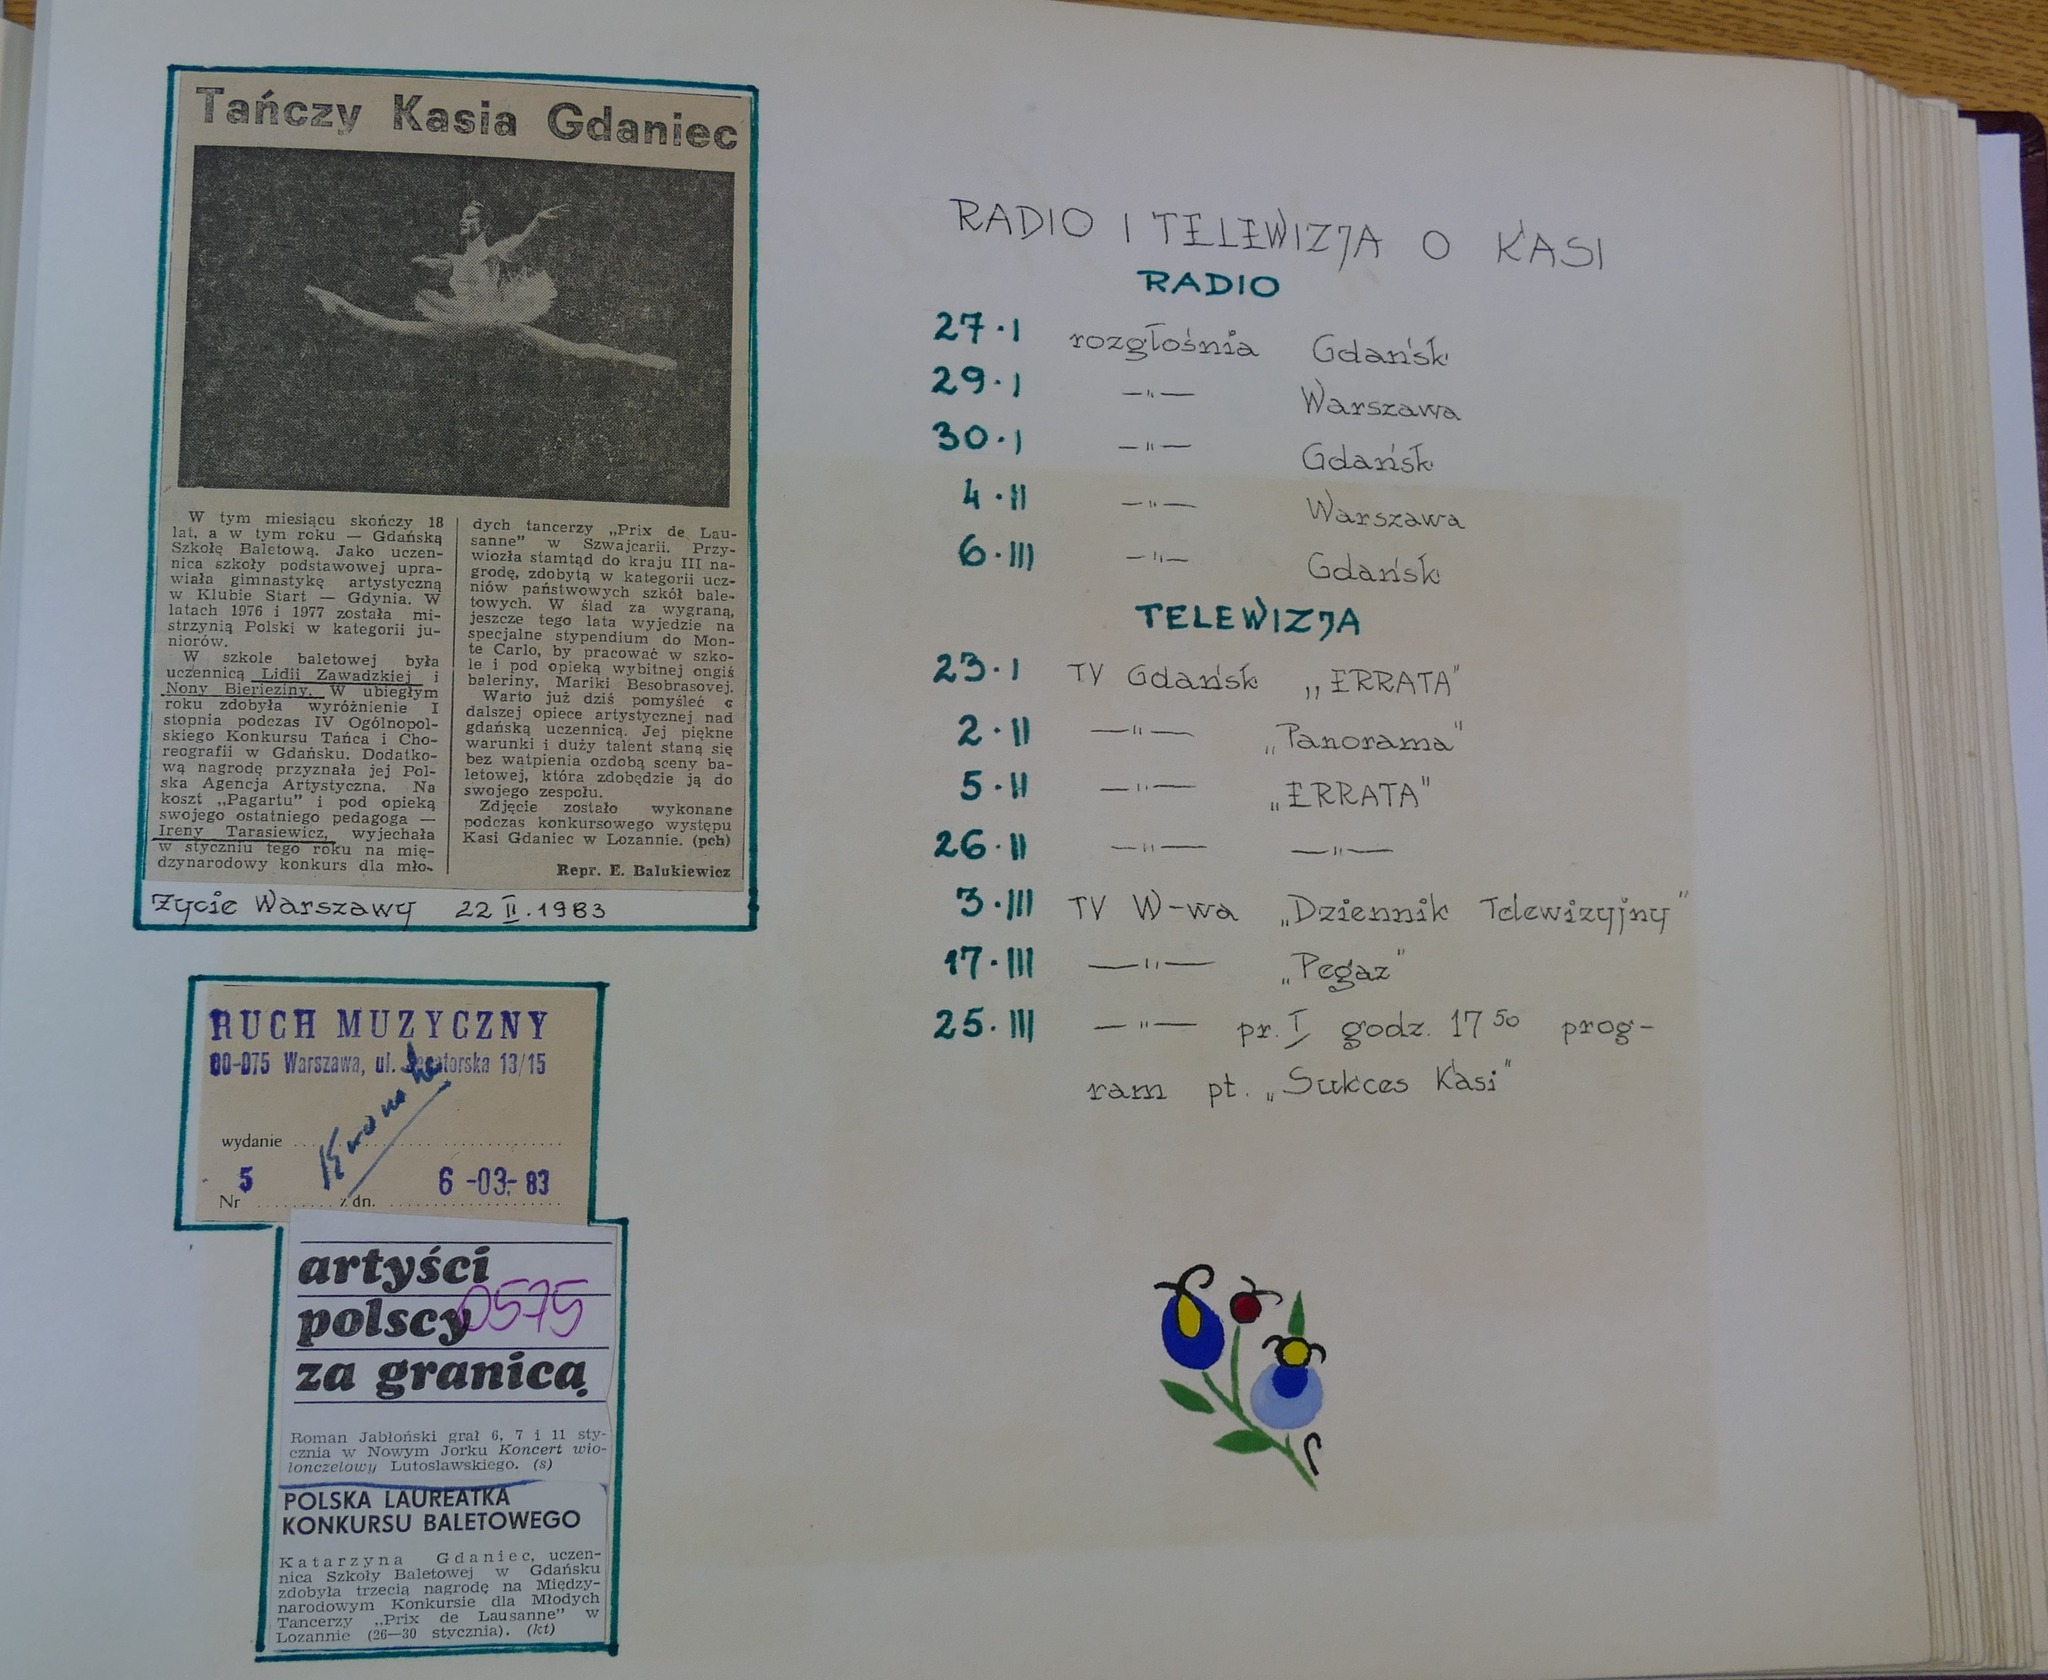 Tańczy Kasia Gdaniec
W tym miesiącu skończy 18
lat, a w tym roku — Gdańską
Szkołę Baletową. Jako uczen-
nica szkoły podstawowej upra-
wiała gimnastykę artystyczną
w Klubie Start — Gdynia. W
latach 1976 i 1977 została mi-
strzynią Polski w kategorii ju-
niorów.
W szkole baletowej była
uczennicą Lidii Zawadzkiej i
Nony Bierieziny. W ubiegłym
roku zdobyła wyróżnienie I
stopnia podczas IV Ogólnopol-
skiego Konkursu Tańca i Cho-
reografii w Gdańsku. Dodatko-
wą nagrodę przyznała jej Pol-
ska Agencja Artystyczna. Na
koszt „Pagartu” i pod opieką
swojego ostatniego pedagoga —
Ireny Tarasiewicz, wyjechała
w styczniu tego roku na mię-
dzynarodowy konkurs dla mło-
dych tancerzy „Prix de Lau-
sanne” w Szwajcarii. Przy-
wiozła stamtąd do kraju III na-
grodę, zdobytą w kategorii ucz-
niów państwowych szkół bale-
towych. W ślad za wygraną,
jeszcze tego lata wyjedzie na
specjalne stypendium do Mon-
te Carlo, by pracować w szko-
le i pod opieką wybitnej ongiś
baleriny, Mariki Besobrasovej.
Warto już dziś pomyśleć o
dalszej opiece artystycznej nad
gdańską uczennicą. Jej piękne
warunki i duży talent staną się
bez wątpienia ozdobą sceny ba-
letowej, która zdobędzie ją do
swojego zespołu.
Zdjęcie zostało wykonane
podczas konkursowego występu
Kasi Gdaniec w Lozannie. (pch)
Repr. E. Balukiewicz
Życie Warszawy 22 II.1983
RUCH MUZYCZNY
00-075 Warszawa, ul. Senatorska 13/15
wydanie
Nr 5 z dn. 6 -03- 83
artyści
polscy 0575
za granicą
Roman Jabłoński grał 6, 7 i 11 sty-
cznia w Nowym Jorku Koncert wio-
lonczelowy Lutosławskiego. (s)
POLSKA LAUREATKA
KONKURSU BALETOWEGO
Katarzyna Gdaniec, uczen-
nica Szkoły Baletowej w Gdańsku
zdobyła trzecią nagrodę na Między-
narodowym Konkursie dla Młodych
Tancerzy „Prix de Lausanne” w
Lozannie (26—30 stycznia). (kt)
RADIO I TELEWIZJA O KASI
RADIO
27·I rozgłośnia Gdańsk
29·I —"— Warszawa
30·I —"— Gdańsk
4·II —"— Warszawa
6·III —"— Gdańsk
TELEWIZJA
23·I TV Gdańsk „ERRATA"
2·II —"— „Panorama"
5·II —"— „ERRATA"
26·II —"— —"—
3·III TV W-wa „Dziennik Telewizyjny"
17·III —"— „Pegaz"
25·III —"— pr. I godz. 17 50 prog-
ram pt. „Sukces Kasi"